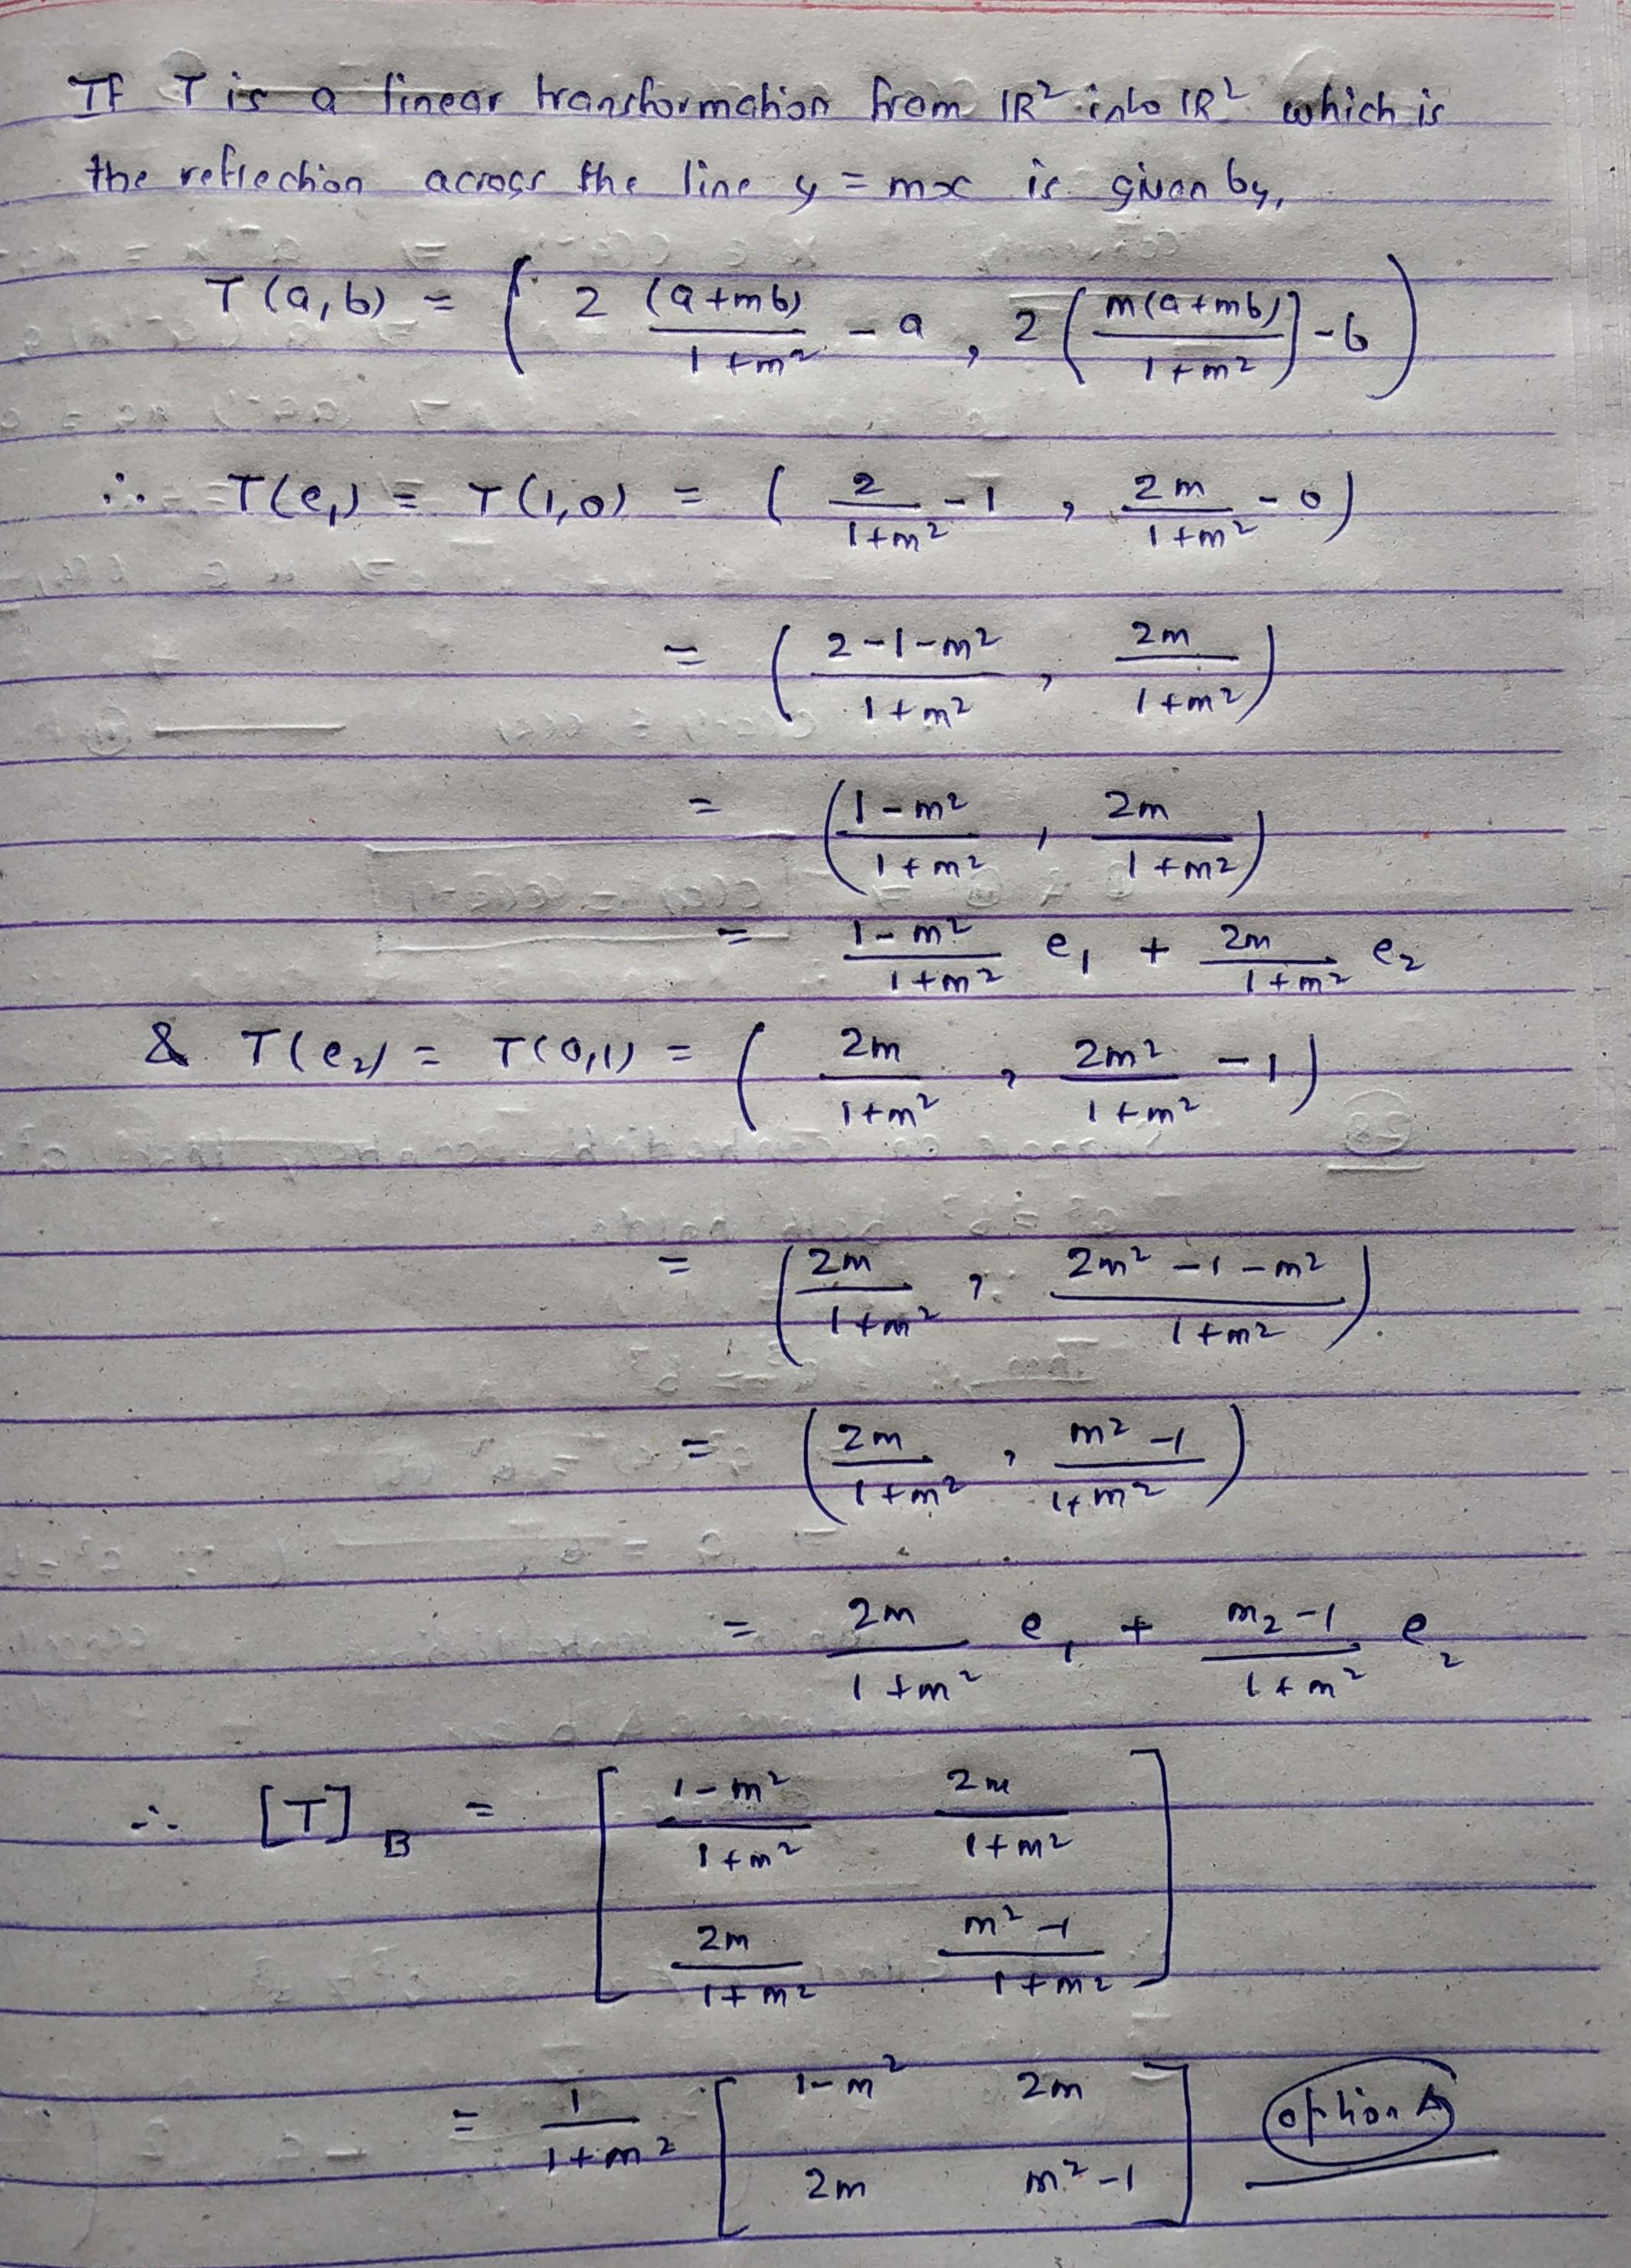 If T is a linear transformation from IR² into IR² which is
the reflection across the line y = mx is given by,
T(a,b) = ( 2 (a+mb)/(1+m²) - a , 2 ( m(a+mb)/(1+m²) ) - b )
∴ T(e₁) = T(1,0) = ( 2/(1+m²) - 1 , 2m/(1+m²) - 0 )
= ( (2-1-m²)/(1+m²) , 2m/(1+m²) )
= ( (1-m²)/(1+m²) , 2m/(1+m²) )
= (1-m²)/(1+m²) e₁ + 2m/(1+m²) e₂
& T(e₂) = T(0,1) = ( 2m/(1+m²) , 2m²/(1+m²) - 1 )
= ( 2m/(1+m²) , (2m²-1-m²)/(1+m²) )
= ( 2m/(1+m²) , (m²-1)/(1+m²) )
= 2m/(1+m²) e₁ + (m₂-1)/(1+m²) e₂
∴ [T]_B = [ (1-m²)/(1+m²) 2m/(1+m²)
2m/(1+m²) (m²-1)/(1+m²) ]
= 1/(1+m²) [ 1-m² 2m
2m m²-1 ] option A